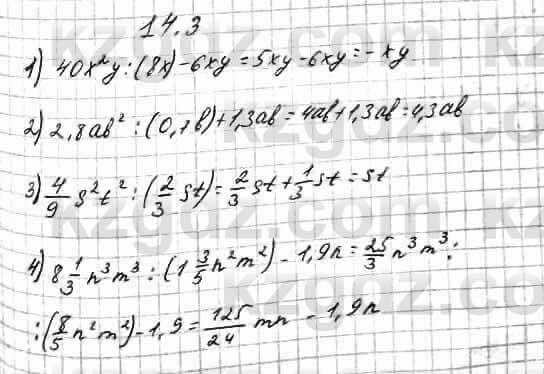 14.3
1) 40x²y : (8x) - 6xy = 5xy - 6xy = - xy
2) 2,8ab² : (0,7b) + 1,3ab = 4ab + 1,3ab = 4,3ab
3) 4/9 s²t² : (2/3 st) = 2/3 st + 1/3 st = st
4) 8 1/3 n³m³ : (1 3/5 n²m²) - 1,9n = 25/3 n³m³ :
: (8/5 n²m²) - 1,9 = 125/24 mn - 1,9n
kzgdz.com